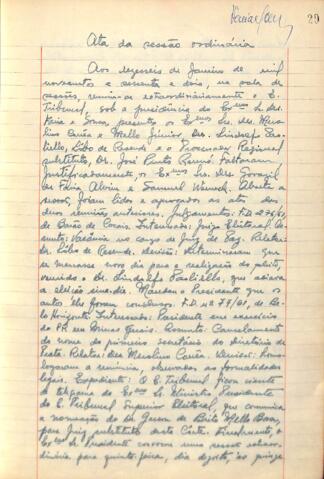 29
Ata da sessão ordinária
Aos dezesseis de Janeiro de mil
novecentos e sessenta e dois, na sala de
sessões, reuniu-se extraordinariamente o E.
Tribunal, sob a presidência do Exmo. Sr. Des.
Faria e Sousa, presentes os Exmos. Srs. Des.
e Mello Júnior, Drs. Lindolfo
Lôbo de Resende e o Procurador Regional
substituto, Dr. José Faltaram
justificadamente, os Exmos. Srs. Des.
Alvim e Samuel Aberta a
sessão, foram lidas e aprovadas as atas das
duas reuniões anteriores. Julgamentos:
de Barão de Cocais. Interessado: Juiz Eleitoral. As-
sunto: Vacância no cargo de Juiz de Paz. Relator:
Dr. Lôbo de Resende. Decisão: Determinaram que
se marcasse novo dia para a realização do pleito,
vencido o Dr. Lindolfo que
a eleição Mandou o Presidente que
os autos lhe fossem conclusos. de Be-
lo Horizonte. Interessado: Presidente em exercício
do PR em Minas Gerais. Assunto: Cancelamento
do nome do primeiro secretário do Diretório de
Prata. Relator: Des. Decisão: Homo-
logaram a renúncia, observadas as formalidades
legais. Expediente: O E. Tribunal ficou ciente
do telegrama do Exmo. Sr. Ministro Presidente
do E. Tribunal Superior Eleitoral, que comunica
a nomeação do Dr. Gerson de Brito Mello Boson,
para Juiz substituto desta Corte. Finalmente, o
Exmo. Sr. Presidente convocou uma sessão extraor-
dinária para quinta-feira, dia dezoito, às quinze